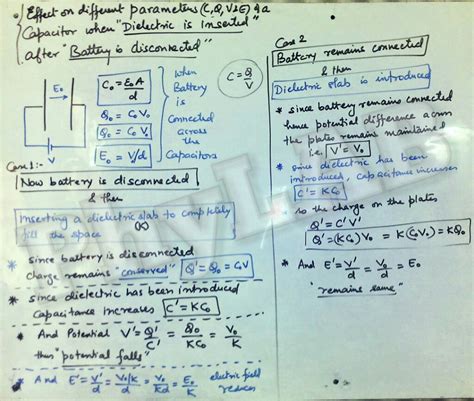 Effect on different parameters (C, Q, V & E) of a
Capacitor when "Dielectric is inserted"
after "Battery is disconnected"
E₀
C₀ = ε₀A/d
Q₀ = C₀V₀
E₀ = V/d
when
Battery
is
connected
across
the
Capacitors
C = Q/V
Case 1:-
Now battery is disconnected
& then
Inserting a dielectric slab to completely
fill the space (K)
* since battery is disconnected
charge remains "conserved" Q' = Q₀ = C₀V
* since dielectric has been introduced
Capacitance increases C' = KC₀
* And Potential V' = Q'/C' = Q₀/KC₀ = V₀/K
thus "potential falls"
* And E' = V'/d = V₀/K/d = V₀/Kd = E₀/K electric field
reduces
Case 2
Battery remains connected
& then
Dielectric slab is introduced
* since battery remains connected
hence potential difference across
the plates remains maintained
i.e. V' = V₀
* since dielectric has been
introduced, capacitance increases
C' = KC₀
so the charge on the plates
Q' = C'V'
Q' = (KC₀)V₀ = K(C₀V₀) = KQ₀
* And E' = V'/d = V₀/d = E₀
"remains same"